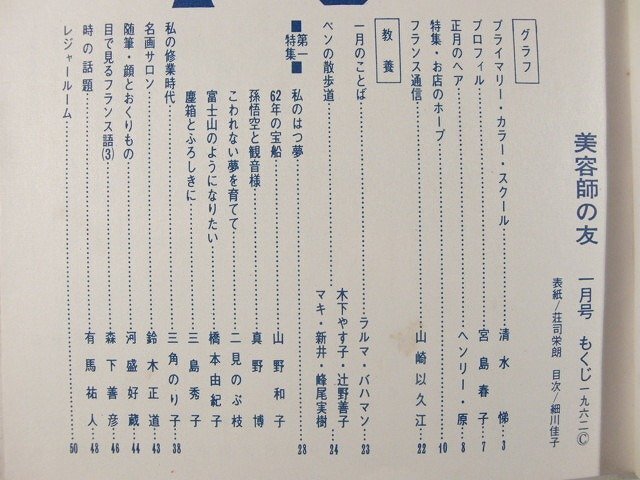 美容師の友 一月号 もくじ 一九六二 ©
表紙/荘司栄朗 目次/細川佳子
グラフ
プライマリー・カラー・スクール 清水悌 3
プロフィル 宮島春子 7
正月のヘア ヘンリー・原 8
特集・お店のホープ 10
フランス通信 山崎以久江 22
教養
一月のことば ラルマ・バハマン 23
ペンの散歩道 木下やす子・辻野善子 マキ・新井・峰尾実樹 24
■第一特集■ 私のはつ夢 28
62年の宝船 山野和子
孫悟空と観音様 真野博
こわれない夢を育てて 二見のぶ枝
富士山のようになりたい 橋本由紀子
塵箱とふろしきに 三島秀子
私の修業時代 三角のり子 38
名画サロン 鈴木正道 43
随筆・顔とおくりもの 河盛好蔵 44
目で見るフランス語(3) 森下善彦 46
時の話題 有馬祐人 48
レジャールーム 50